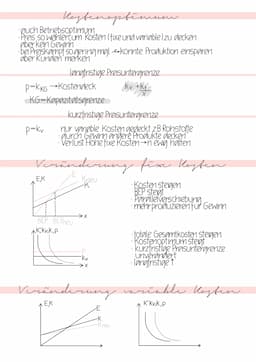 Kostenoptimum
auch Betriebsoptimum
Preis so wählen, um Kosten (fixe und variable) zu decken
aber kein Gewinn
bei Preiskampf sogar ng mal → könnte Produktion einsparen
aber Kunden merken
langfristige Preisuntergrenze
p = kKO → Kostendeck
KG = Kapazitätsgrenze
kurzfristige Preisuntergrenze
p = kv nur variable Kosten gedeckt z.B Rohstoffe
durch Gewinn andere Produkte decken
Verlust Höhe fixe Kosten → n ewig halten
Veränderung fixe Kosten
E,K
E
K
BEP BEPneu
x
Kosten steigen
BEP steigt
Parallelverschiebung
mehr produzieren für Gewinn
K',k,kv,p
kv
x
totale Gesamtkosten steigen
Kostenoptimum steigt
kurzfristige Preisuntergrenze
unverändert
langfristige ↑
Veränderung variable Kosten
E,K
E
K
x
K',k,kv,p